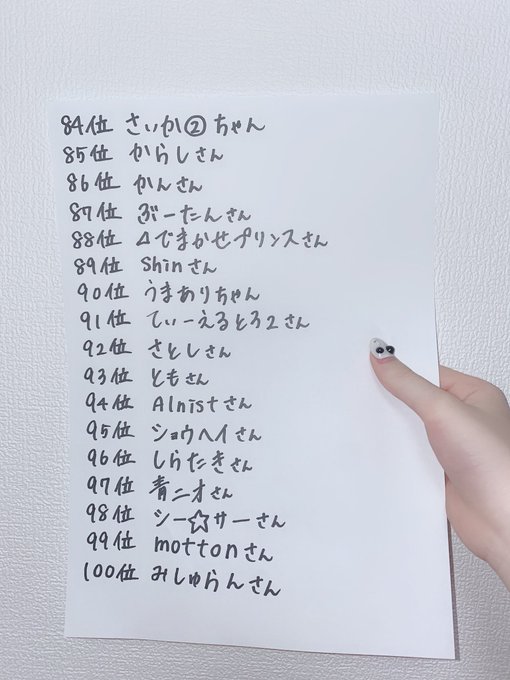 84位 さいか②ちゃん
85位 からしさん
86位 かんさん
87位 ぶーたんさん
88位 ⊿でまかせプリンスさん
89位 Shinさん
90位 うまありちゃん
91位 てぃーえるとろ2さん
92位 さとしさん
93位 ともさん
94位 Alnistさん
95位 ショウヘイさん
96位 しらたきさん
97位 青二才さん
98位 シー☆サーさん
99位 mottonさん
100位 みしゅらんさん